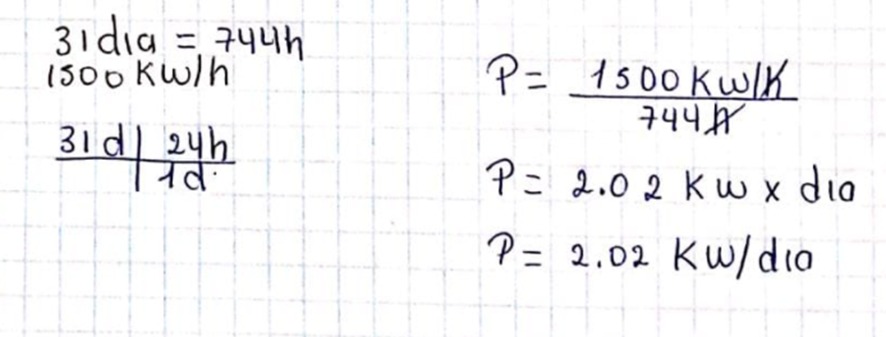 31 dia = 744h
1500 Kw/h
31d | 24h
1d.
P = 1500 Kw/h
744h
P = 2.02 Kw x dia
P = 2.02 Kw/dia